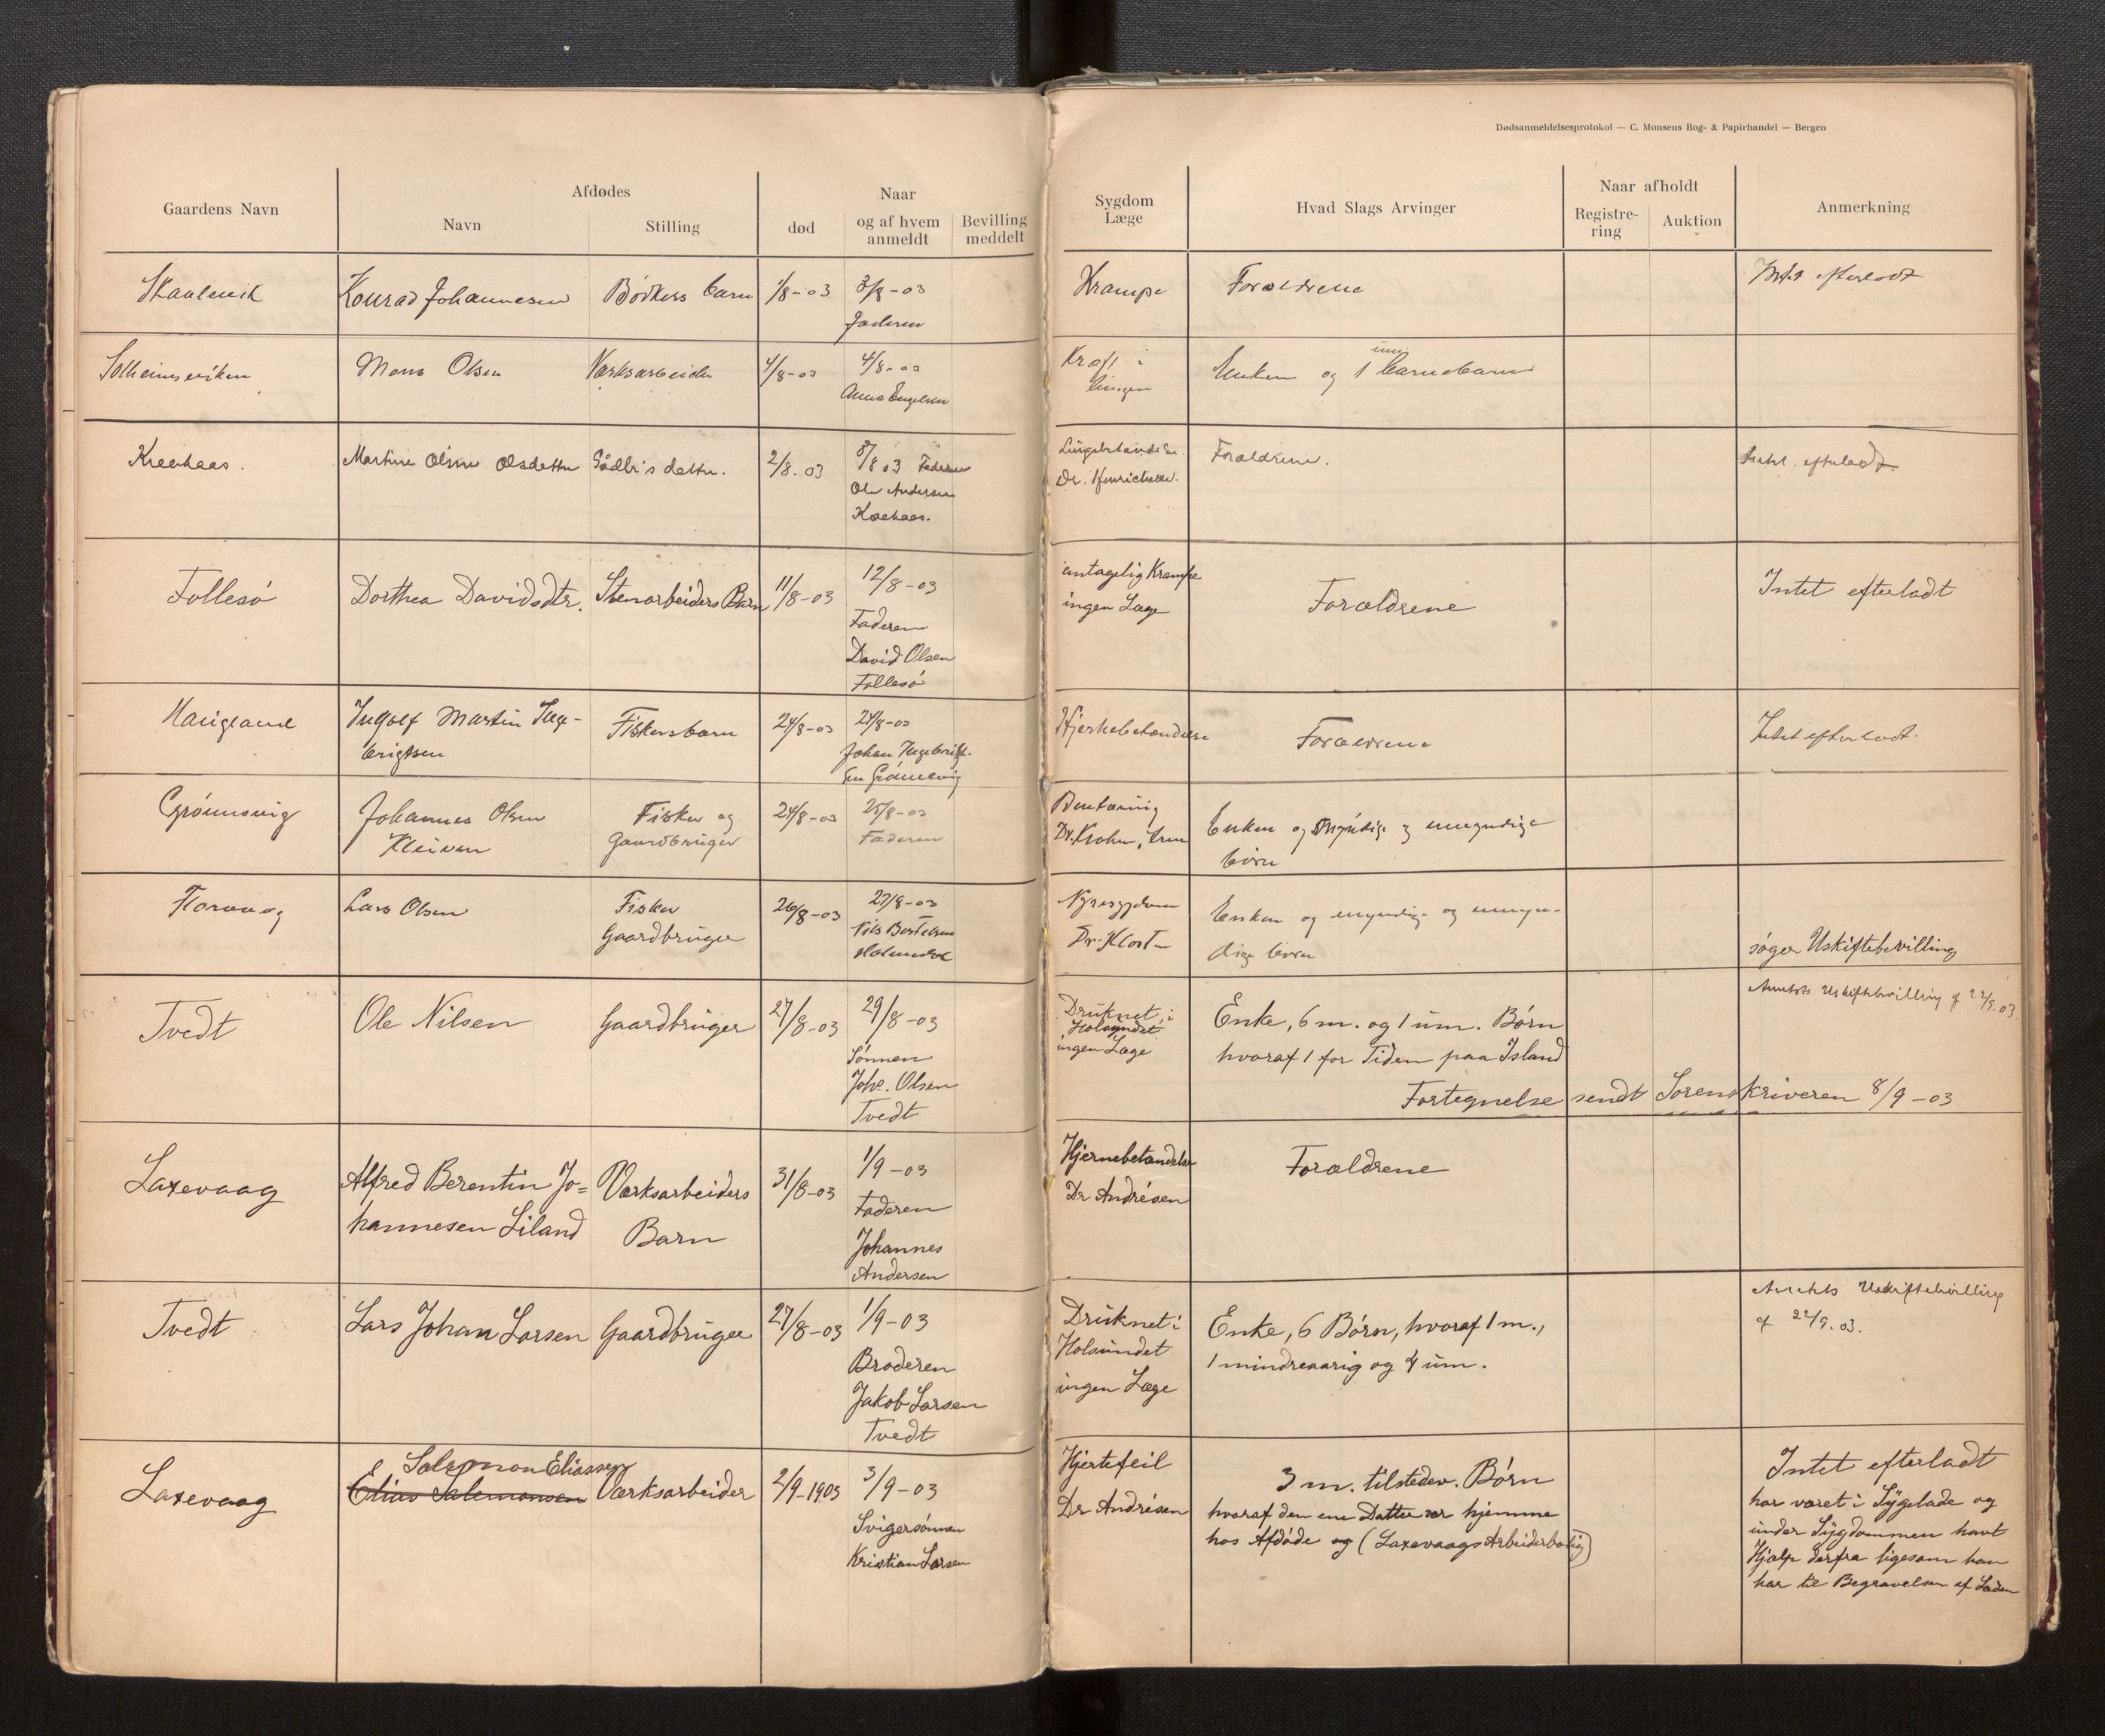 Dødsanmeldelsesprotokol — C. Monsens Bog- & Papirhandel — Bergen
Gaardens Navn
Afdødes
Navn
Stilling
Naar
død
og af hvem
anmeldt
Bevilling
meddelt
Sygdom
Læge
Hvad Slags Arvinger
Naar afholdt
Registre-
ring
Auktion
Anmerkning
Skaalevik
Konrad Johannesen
Bødkers barn
1/8-03
3/8-03
Faderen
Krampe
Forældrene
Intet efterladt
Solheimsviken
Mons Olsen
Værksarbeider
4/8-03
4/8-03
Anna Engelsen
Kræft i
um.
Enken og 1 barnebarn
Martine Olsen Olsdatter
datter.
2/8.03
8/8 03 Faderen
Ole Andersen
Dr. Henrichsen.
Forældrene.
Intet efterladt.
Follesø
Dorthea Davidsdtr.
Stenarbeiders Barn
11/8-03
12/8-03
Faderen
David Olsen
Follesø
antagelig Krampe
ingen Læge
Forældrene
Intet efterladt
Haugland
Ingolf Martin Inge-
brigtsen
Fiskersbarn
24/8-03
24/8-03
Johan Ingebrigt-
sen Grønnevig
Hjernebetændelse
Forældrene
Intet efterladt.
Johannes Olsen
Kleiven
Fisker og
Gaardbruger
24/8-03
25/8-03
Faderen
Dr. Krohn,
Enken og myndige og umyndige
børn
Florvaag
Lars Olsen
Fisker
Gaardbruger
26/8-03
27/8-03
Nils Bertelsen
Nyresygdom
Dr.
Enken og myndig- og umyn-
dige børn
søger Uskiftebevilling
Tvedt
Ole Nilsen
Gaardbruger
27/8-03
29/8-03
Sønnen
Johs. Olsen
Tvedt
Druknet i
Holsundet
ingen Læge
Enke, 6 m. og 1 um. Børn
hvoraf 1 for Tiden paa Island
Fortegnelse sendt Sorenskriveren 8/9-03
Amtets Uskiftebevilling af 22/9.03
Laxevaag
Alfred Berentin Jo=
hannesen Liland
Værksarbeiders
Barn
31/8-03
1/9-03
Faderen
Johannes
Andersen
Hjernebetændelse
Dr Andrésen
Forældrene
Tvedt
Lars Johan Larsen
Gaardbruger
27/8-03
1/9-03
Broderen
Jakob Larsen
Tvedt
Druknet i
Holsundet
ingen Læge
Enke, 6 Børn, hvoraf 1 m.,
1 mindreaarig og 4 um.
Amtets Uskiftebevilling
af 22/9.03.
Laxevaag
Salomon Eliassen
Elias Salomonsen
Værksarbeider
2/9-1903
3/9-03
Svigersønnen
Kristian Larsen
Hjertefeil
Dr Andrésen
3 m. tilstedev. Børn
hvoraf den ene Datter var hjemme
hos Afdøde og (Laxevaags Arbeiderbolig)
Intet efterladt
har været i Sygelade og
under Sygdommen havt
Hjælp derfra ligesom han
har til Begravelsen af Laden